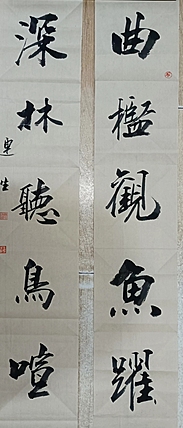 曲檻觀魚躍
深林聽鳥喧